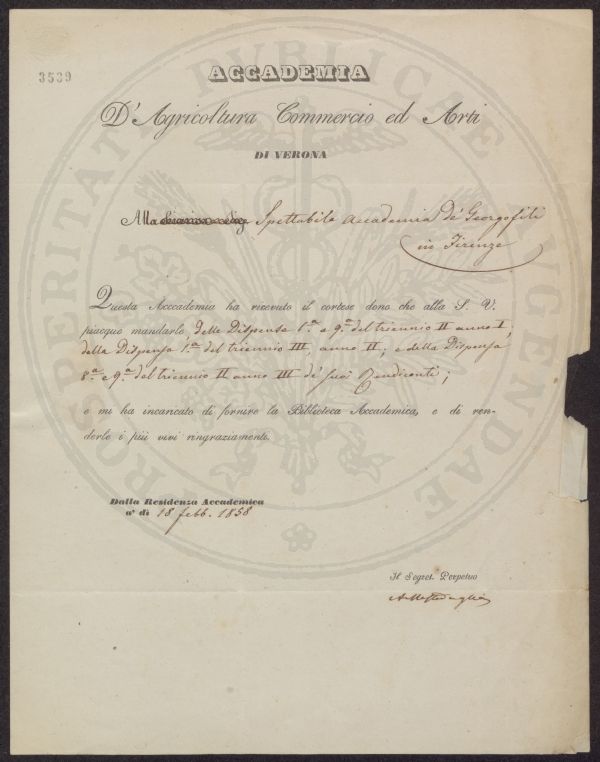 3539
ACCADEMIA
D'Agricoltura Commercio ed Arti
DI VERONA
Alla Spettabile Accademia De' Georgofili
in Firenze
Questa Acccademia ha ricevuto il cortese dono che alla S. V.
piacque mandarle delle Dispense 1.ª e 9.ª del triennio II anno I;
della Dispensa 1.ª del triennio III, anno II; e della Dispensa
8.ª e 9.ª del triennio II anno III de' suoi Rendiconti;
e mi ha incaricato di fornire la Biblioteca Accademica, e di ren-
derle i più vivi ringraziamenti.
Dalla Residenza Accademica
a' dì 18 febb. 1858
Il Segret. Perpetuo
PROSPERITATI PUBLICAE AUGENDAE